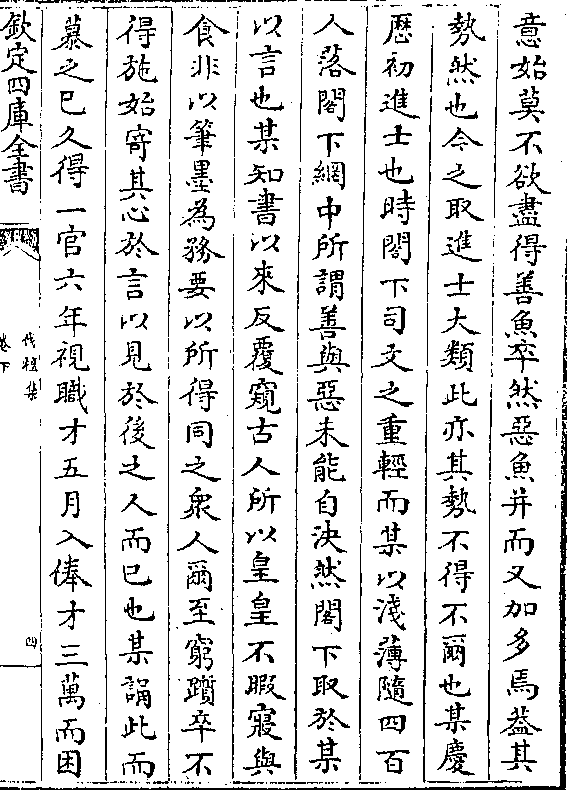 意始莫不欲盡得善魚卒然惡魚并而又加多焉葢其
勢然也今之取進士大類此亦其勢不得不爾也某慶
厯初進士也時閣下司文之重輕而某以淺薄隨四百
人落閣下網中所謂善與惡未能自決然閣下取於某
以言也某知書以來反覆窺古人所以皇皇不暇寢與
食非以筆墨為務要以所得同之衆人爾至窮躓卒不
得施始寄其心於言以見於後之人而已也某誦此而
慕之已久得一官六年視職才五月入俸才三萬而困
欽定四庫全書
伐檀集
卷下
四